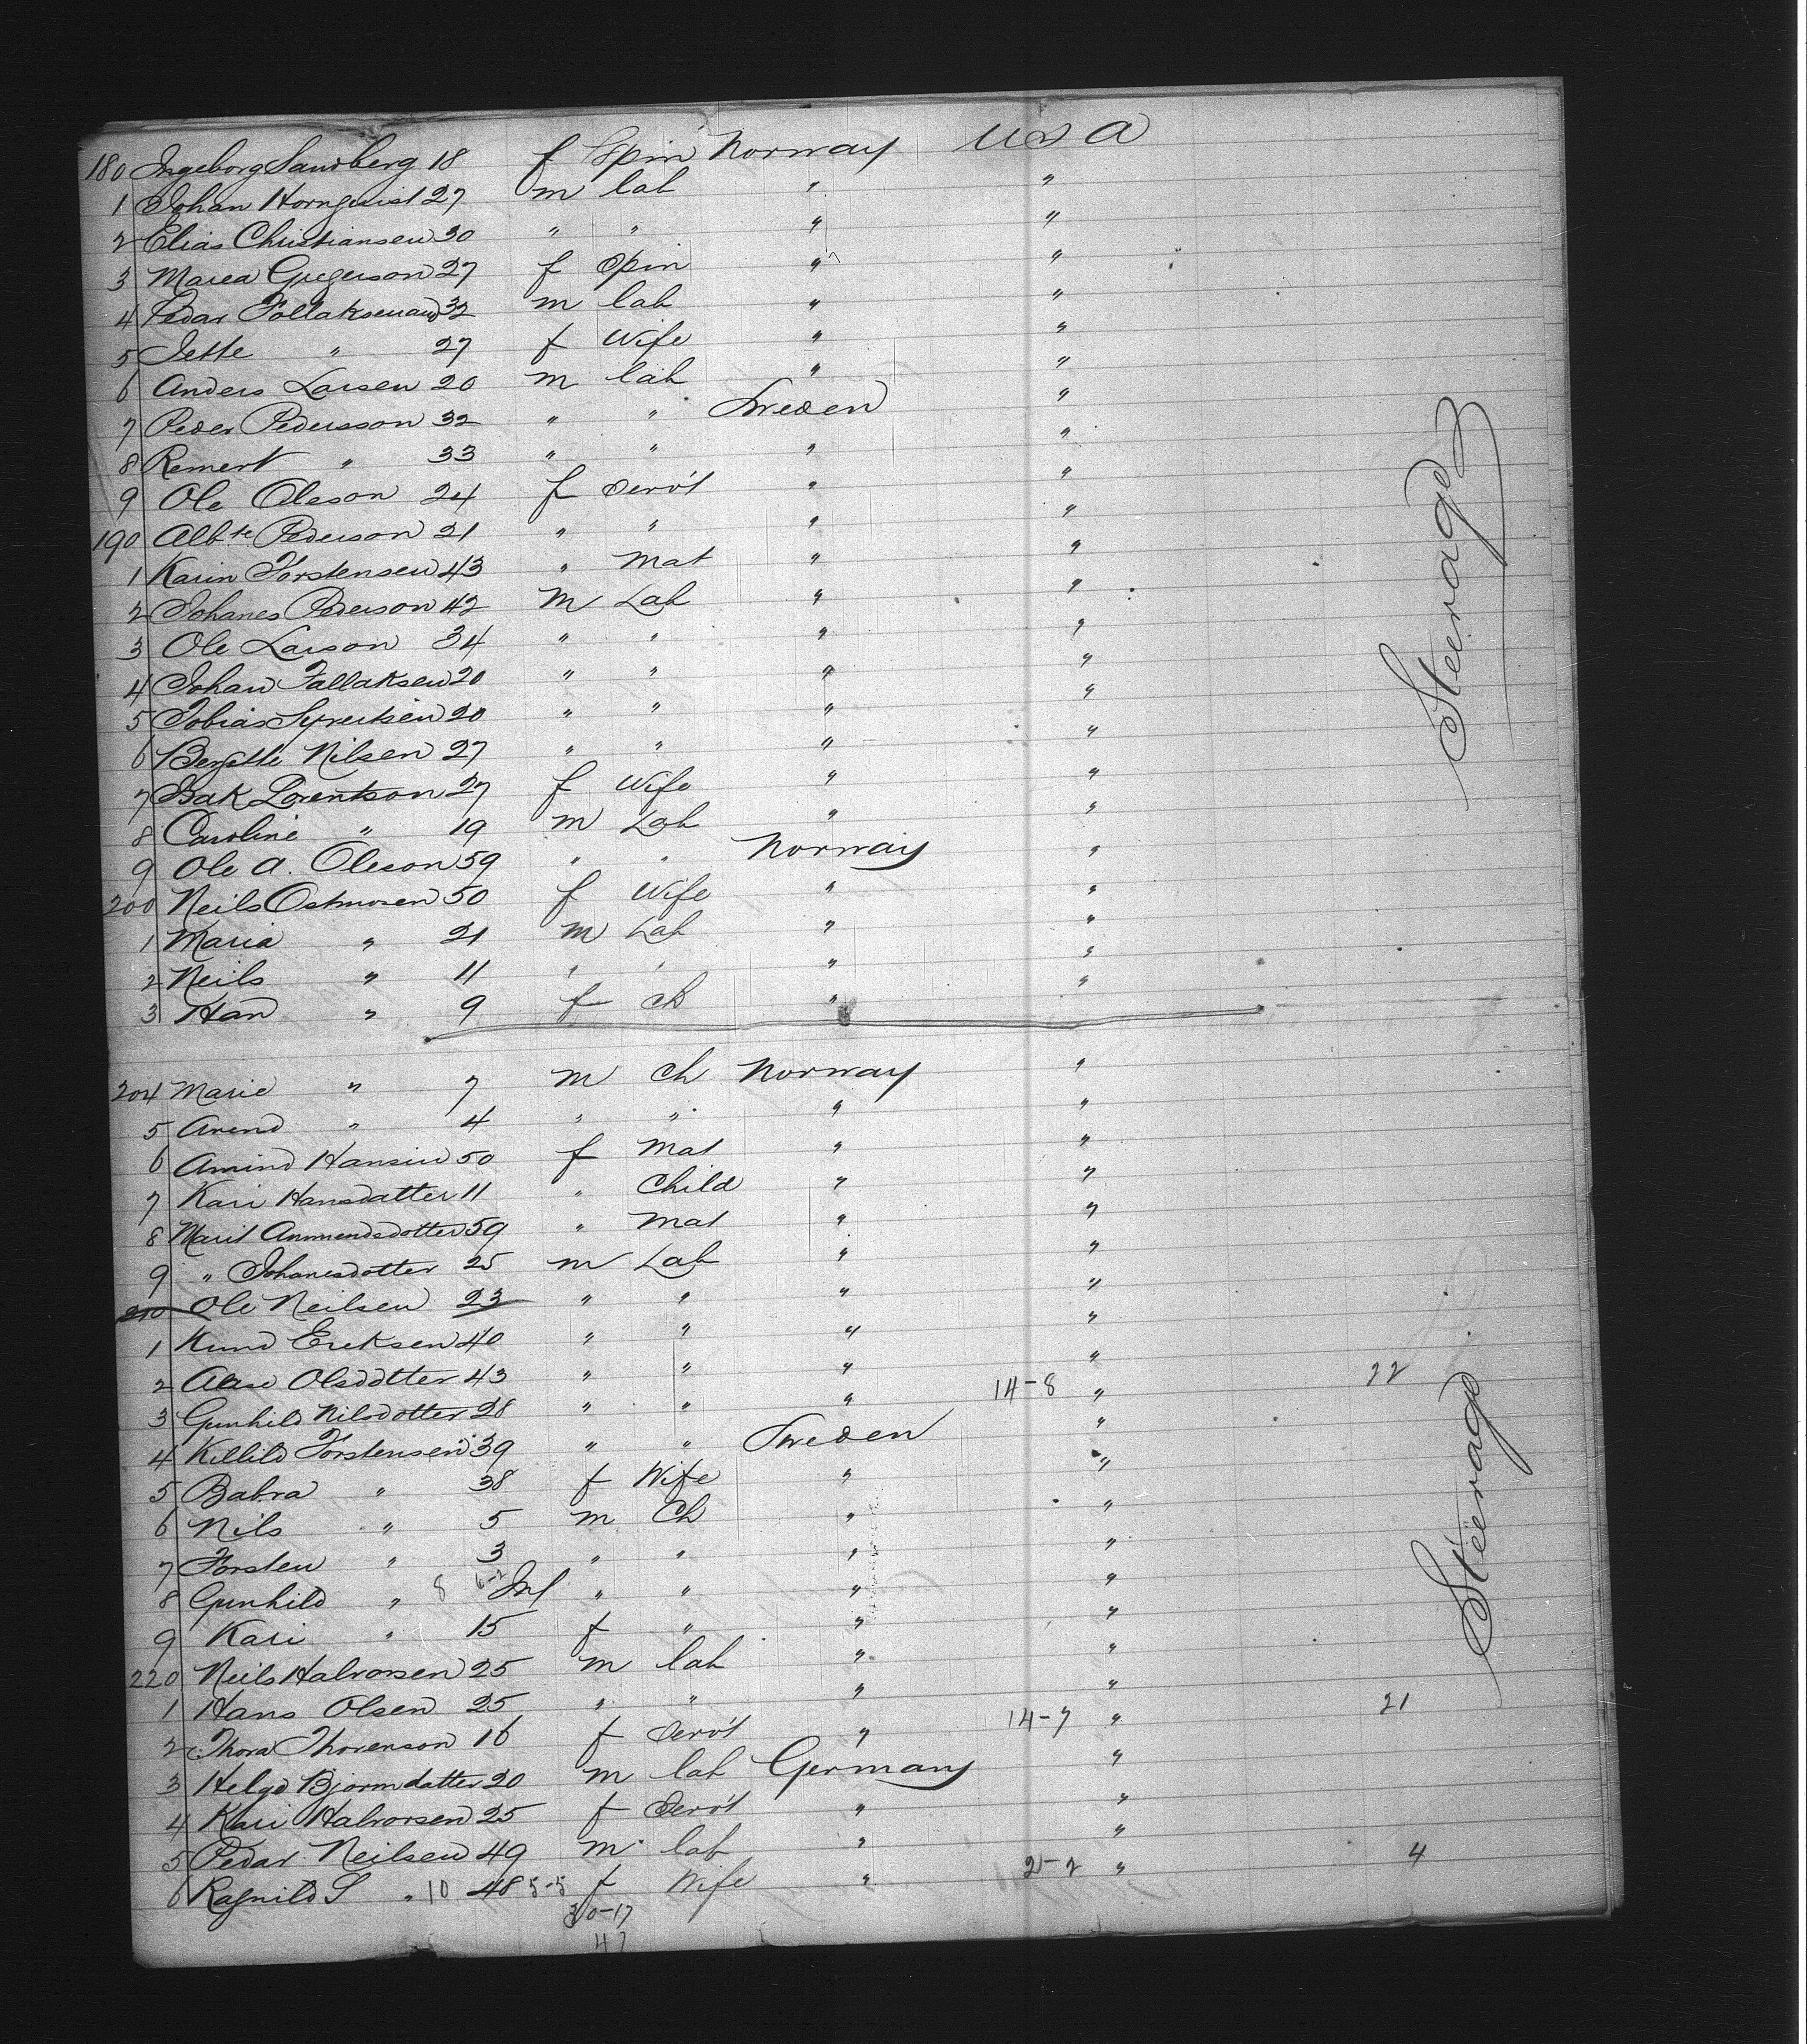 180 Ingeborg Sandberg 18 f Spin Norway USA
1 Johan Hornquist 27 m lab " "
2 Elias Christiansen 30 " " " "
3 Marea Gregerson 27 f Spin " "
4 Pedar Tollaksen and 32 m lab " "
5 Jette " 27 f Wife " "
6 Anders Larsen 20 m lab " "
7 Peder Pedersson 32 " " Sweden "
8 Remert " 33 " " " "
9 Ole Oleson 24 f Serv't " "
190 Alb te Pederson 21 " " " "
1 Karin Torstensen 43 " Mat " "
2 Johanes Pederson 42 M Lab " "
3 Ole Larson 34 " " " "
4 Johan Tallaksen 20 " " " "
5 Tobias 20 " " " "
6 Nilsen 27 " " " "
7 Isak Lorentson 27 f Wife " "
8 Caroline " 19 m Lab " "
9 Ole A. Oleson 59 " " Norway "
200 Neils Ostmosen 50 f Wife " "
1 Maria " 21 m Lab " "
2 Neils " 11 " " " "
3 Han " 9 f ch " "
204 Marie " 7 m Ch Norway "
5 Arend " 4 " " " "
6 Amind Hansen 50 f Mat " "
7 Kari Hansdatter 11 " Child " "
8 Marit Anmundsdotter 59 " Mat " "
9 " Johanesdotter 25 m Lab " "
210 Ole Neilsen 23 " " " "
1 Knud Ereksen 40 " " " "
2 Aase Olsdotter 43 " " " "
3 Gunhild Nilsdotter 28 " " " 14-8 " 22
4 Killild Torstensen 39 " " Sweden "
5 Babra " 38 f Wife " "
6 Nils " 5 m Ch " "
7 Torsten " 3 " " " "
8 Gunhild " 8 6-2 Inf " " " "
9 Kari " 15 f " " "
220 Neils Halvorsen 25 m lab " "
1 Hans Olsen 25 " " " "
2 Thora Thorenson 16 f Serv't " 14-7 " 21
3 Helge Bjorndatter 20 m lab Germany "
4 Kari Halvorsen 25 f Serv't " "
5 Pedar Neilsen 49 m lab " "
6 Ragnild S " 10 48 5-5 f Wife " 2-2 " 4
30-17
47
Steerage
Steerage